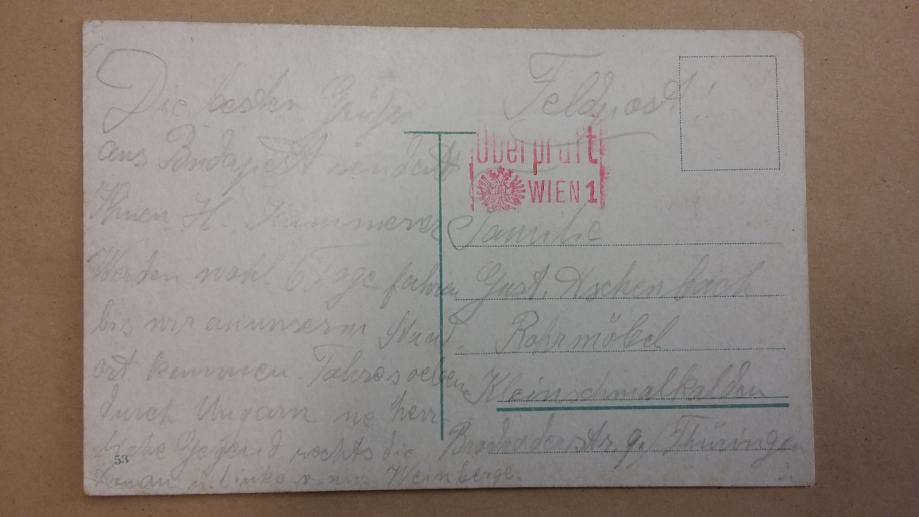 Die besten Grüße
aus Budapest sendet
Ihnen H. Kammerer
Werden wohl 6 Tage fahren
bis wir an unserm Stand
ort kommen. Fahren soeben
durch Ungarn ne herr-
liche Gegend rechts die
Donau u. links nur Weinberge.
53
Feldpost!
Überprüft
WIEN 1
Familie
Gust. Aschenbach
Rohrmöbel
Kleinschmalkalden
Thüringen